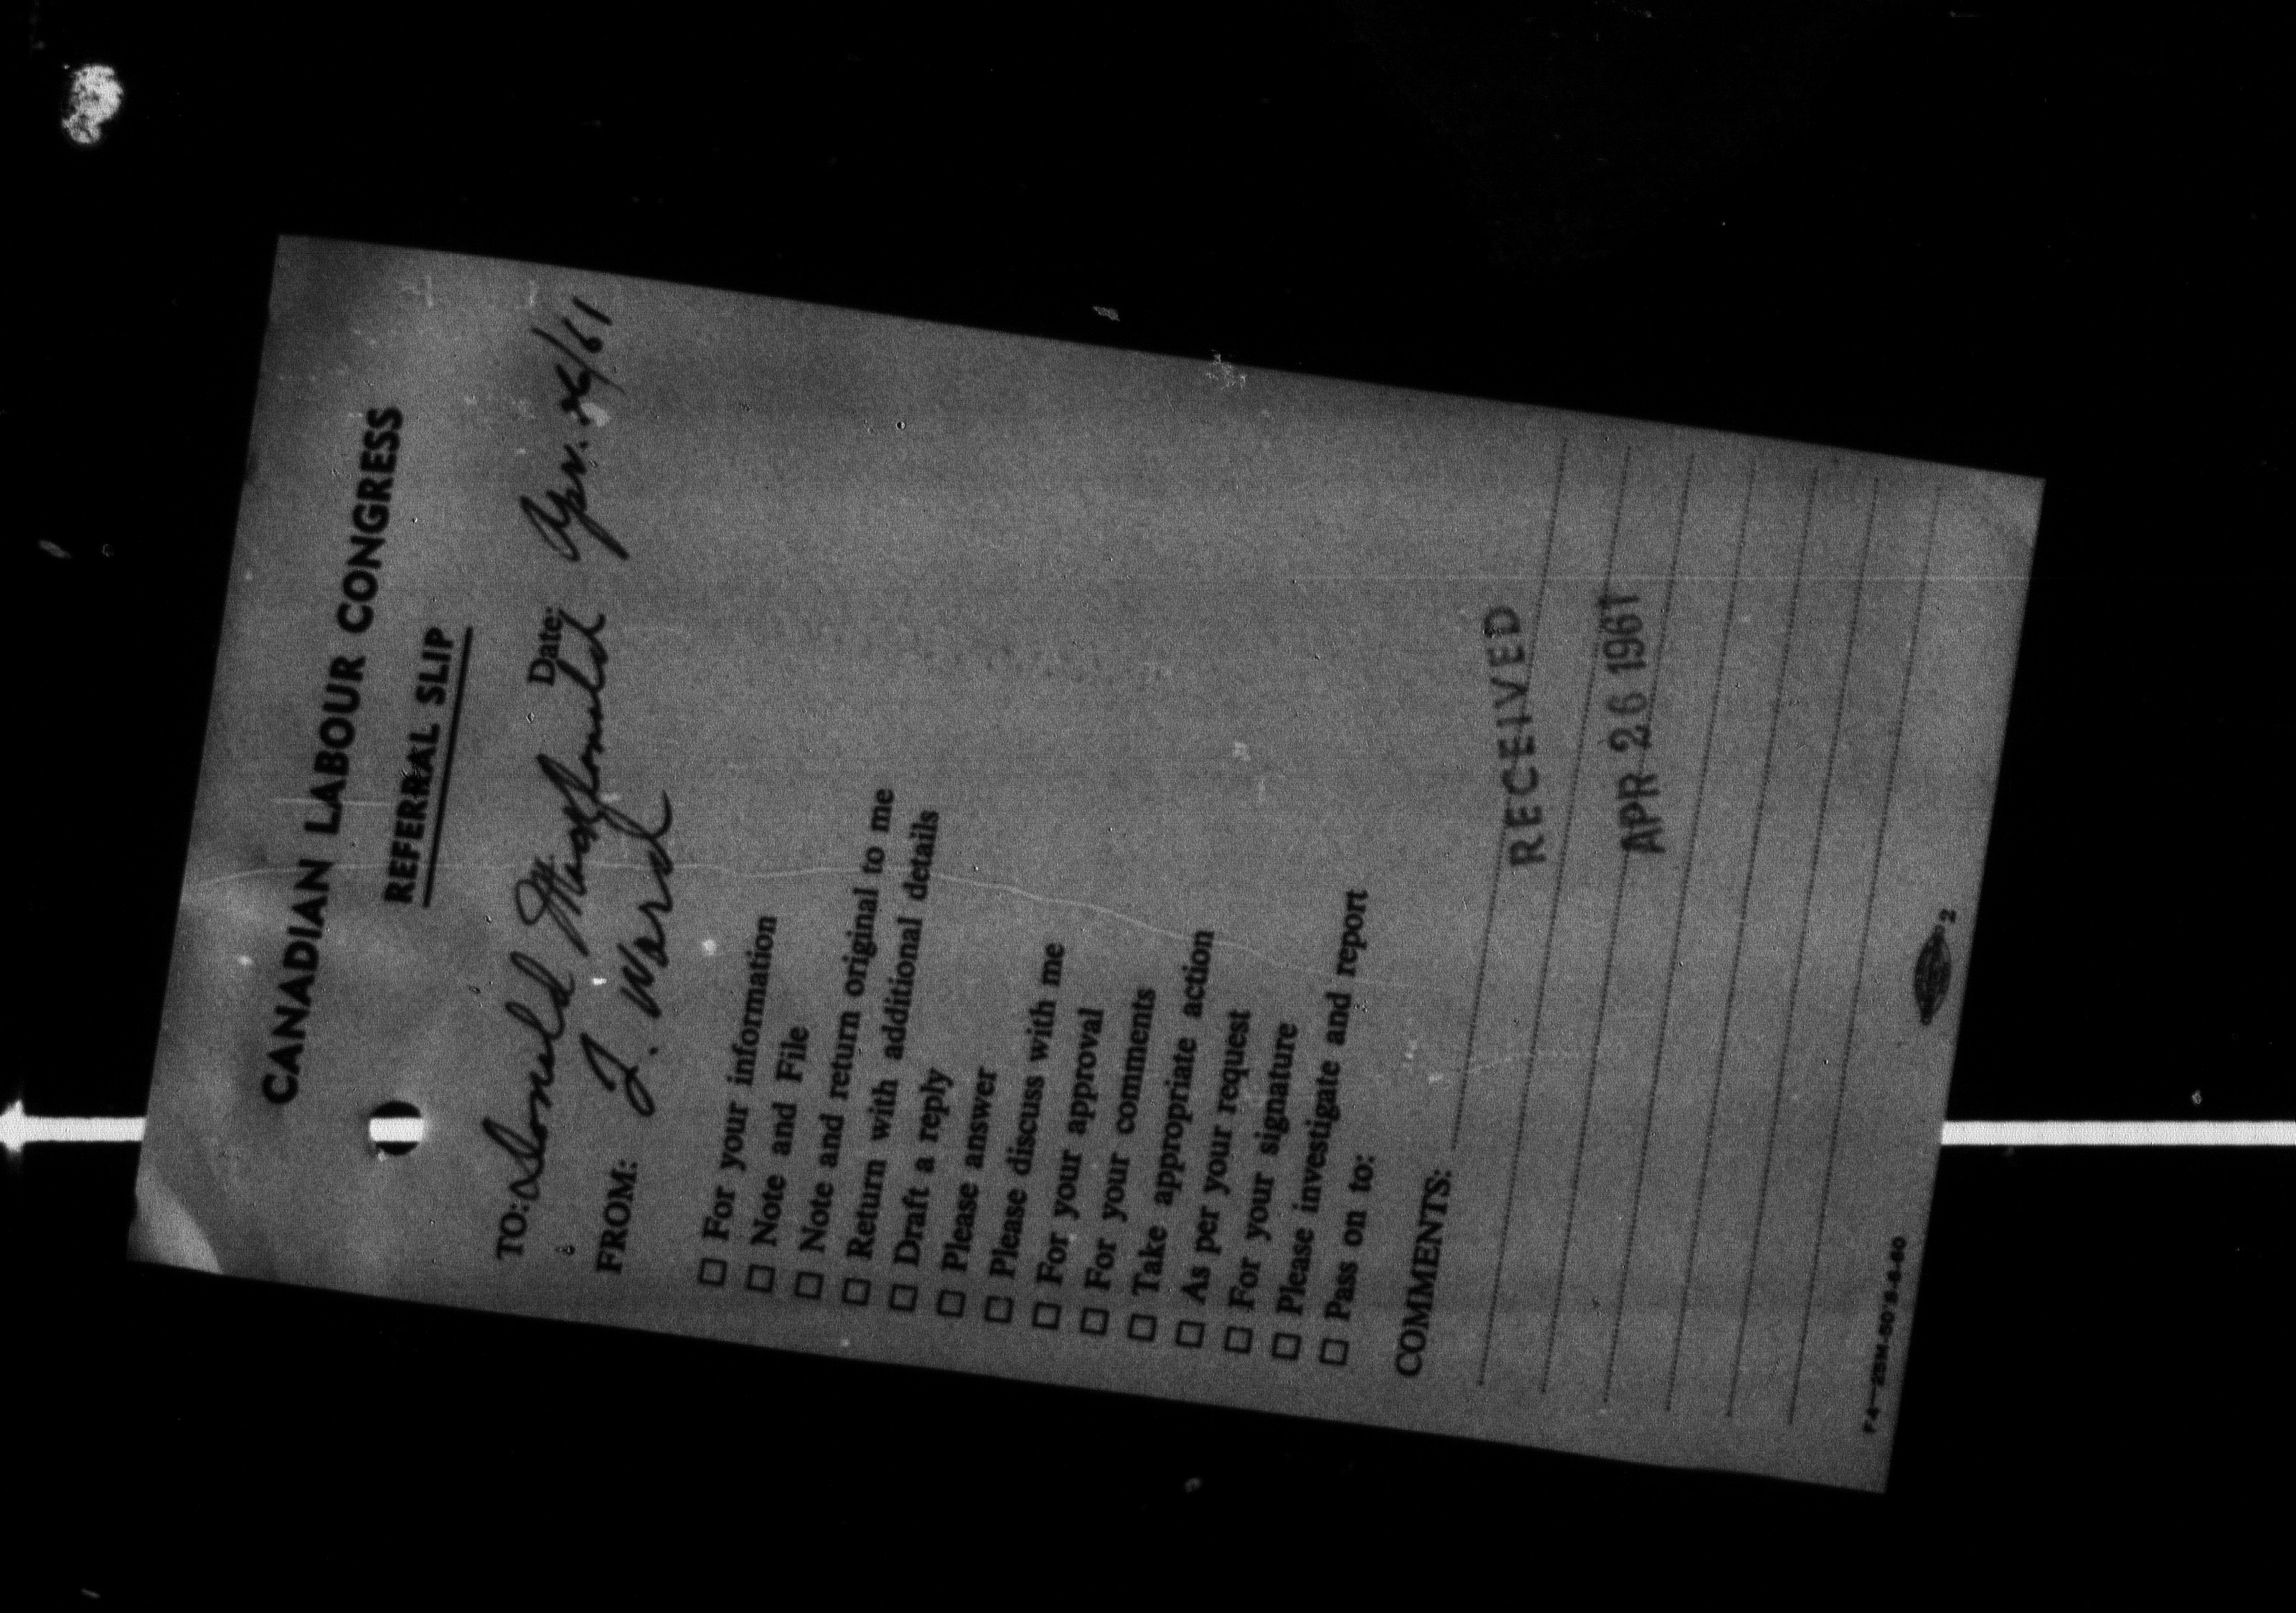 CANADIAN LABOUR CONGRESS
REFERRAL SLIP
TO: Donald MacDonald Date: Apr. 26/61
FROM: J. Ward
☐ For your information
☐ Note and File
☐ Note and return original to me
☐ Return with additional details
☐ Draft a reply
☐ Please answer
☐ Please discuss with me
☐ For your approval
☐ For your comments
☐ Take appropriate action
☐ As per your request
☐ For your signature
☐ Please investigate and report
☐ Pass on to:
COMMENTS:
RECEIVED
APR 26 1961
2